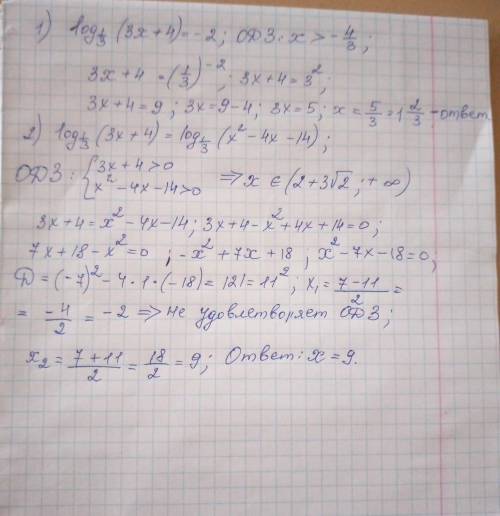 1) log_{1/3} (3x+4) = -2; ОДЗ: x > -4/3;
3x+4 = (1/3)^{-2}; 3x+4 = 3^2;
3x+4=9; 3x=9-4; 3x=5; x = 5/3 = 1 2/3 - ответ
2) log_{1/3} (3x+4) = log_{1/3} (x^2-4x-14);
ОДЗ: { 3x+4>0
x^2-4x-14>0 => x ∈ (2+3√2; +∞)
3x+4=x^2-4x-14; 3x+4-x^2+4x+14=0;
7x+18-x^2=0; -x^2+7x+18, x^2-7x-18=0;
D = (-7)^2-4·1·(-18) = 121 = 11^2; x_1 = (7-11)/2 =
= -4/2 = -2 => не удовлетворяет ОДЗ;
x_2 = (7+11)/2 = 18/2 = 9; Ответ: x=9.